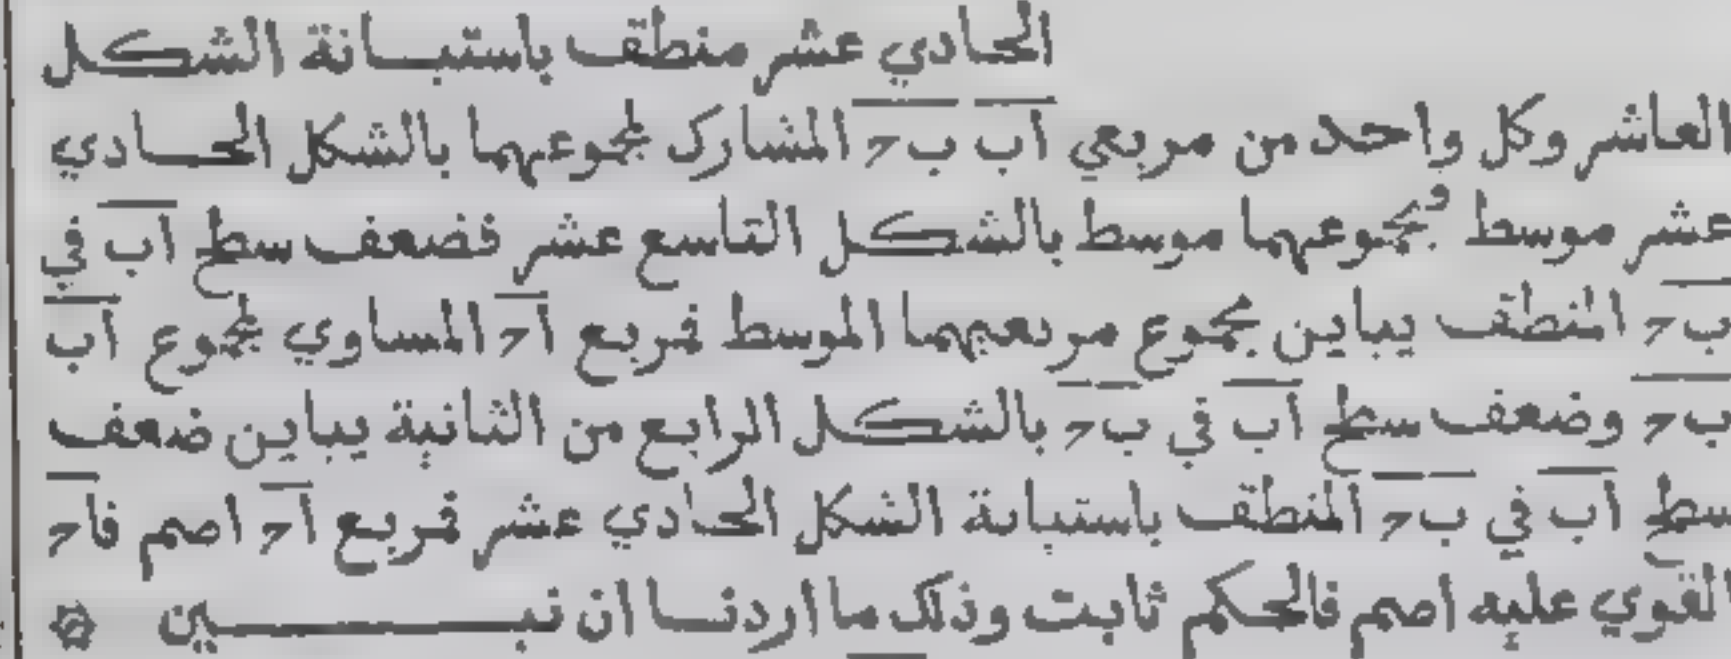 الحادي عشر منطقف باستبانة الشكل
العاشر وكل واحد من مربعي اب ب‍ح المشارك لمجموعهما بالشكل الحادي
عشر موسط فمجموعهما موسط بالشكل التاسع عشر فضعف سطح اب في
ب‍ح المنطقف يباين مجموع مربعيهما الموسط فمربع اح المساوي لمجموع اب
ب‍ح وضعف سطح اب في ب‍ح بالشكل الرابع من الثانية يباين ضعف
سطح اب في ب‍ح المنطقف باستبانة الشكل الحادي عشر فمربع اح اصم فاح
القوي عليه اصم فالحكم ثابت وذلك ما اردنا ان نبين